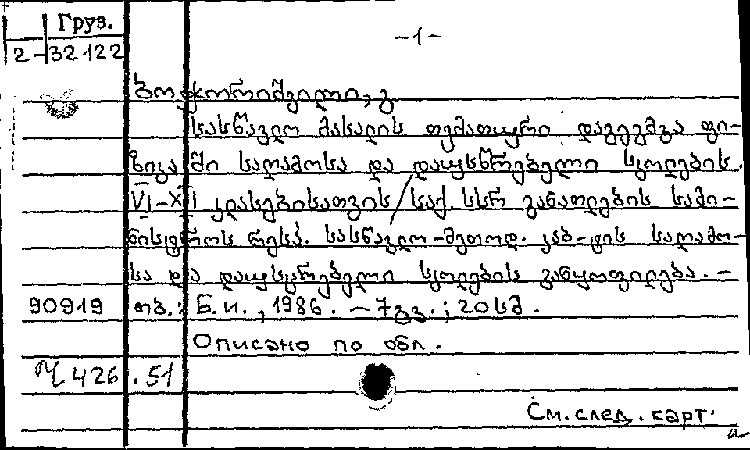 Груз.
2-32122
-1-
ზოქიორიშვილი, გ
სასწავლო მასალის თემატური დაგეგმვა ფი-
ზიკაში საღამოსა და დაუსწრებელი სკოლების
VI-XI კლასებისათვის / საქ. სსრ განათლების სამი-
ნისტროს რესპ. სასწავლო-მეთოდ. კაბ-ტის საღამო-
სა და დაუსწრებელი სკოლების განყოფილება. -
90919 თბ.: Б.и., 1986. - 7გვ.; 20სმ.
Описано по обл.
М426.51
См. след. карт.